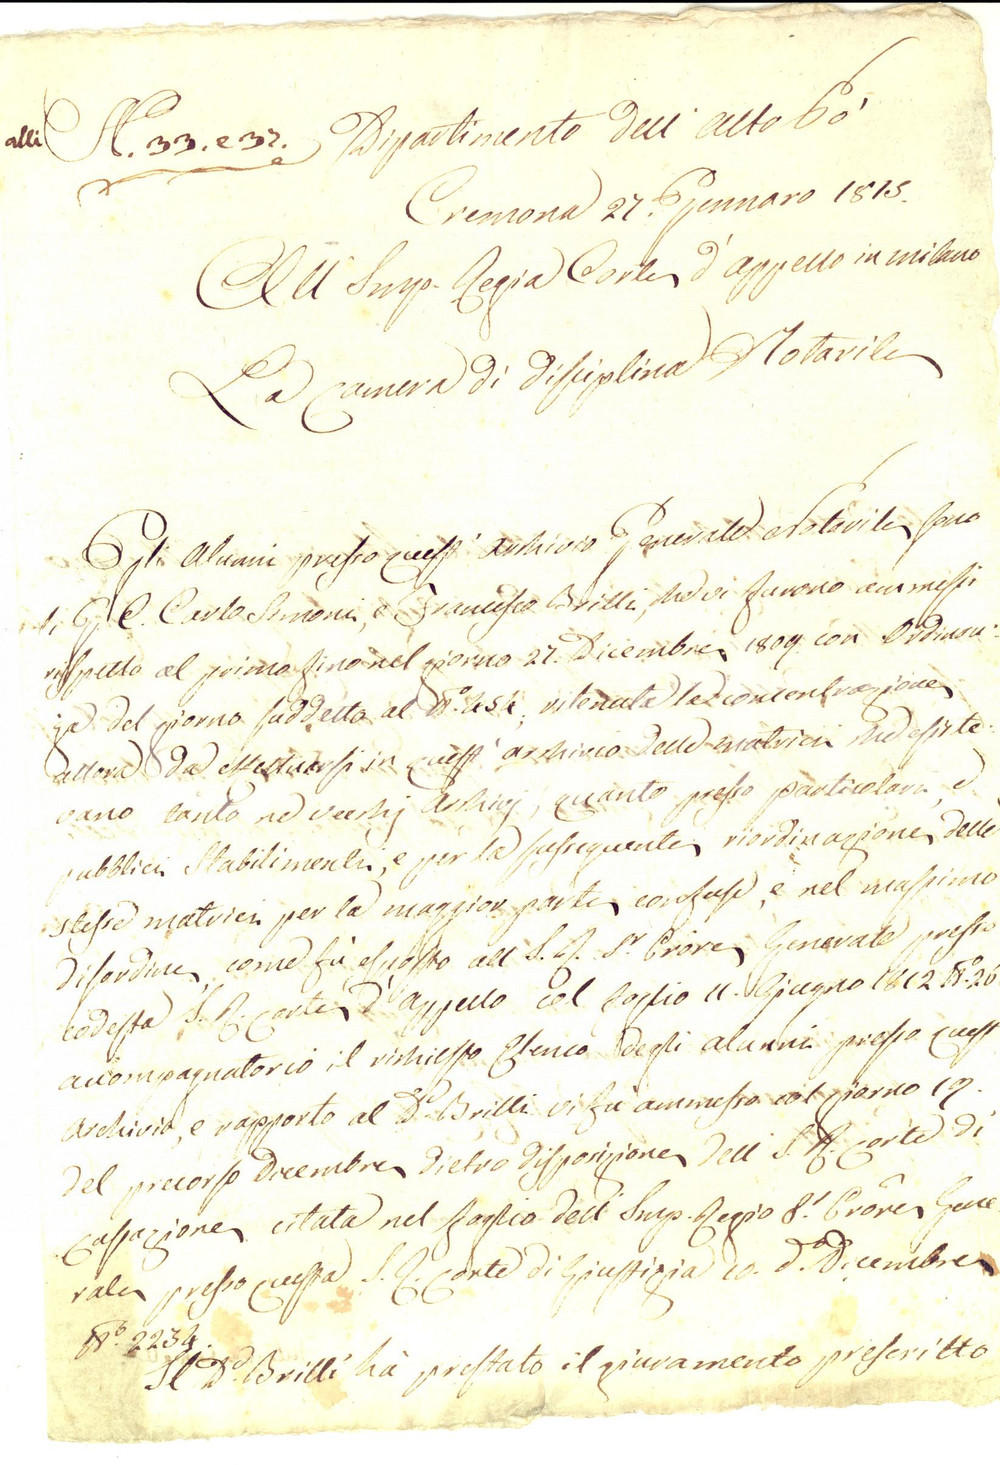 alli N. 33. e 37. Dipartimento dell' alto Pò
Cremona 27. Gennaro 1815.
All' Imp. Regia Corte d'appello in milano
La Camera di disciplina Notarile
Gli Alunni presso quest' archivio Generale Notarile sono
li Carlo Simoni, e Francesco Brilli, che vi furono ammessi
rispetto al primo fino nel giorno 27. Dicembre 1809 con Ordinan:
za del giorno suddetto al N.o 454, ritenuta la concentrazione
allora da effettuarsi in quest' archivio delle matrici che esiste:
vano tanto ne vecchj Archivj, quanto presso particolari, e
pubblici Stabilimenti, e per la susseguente riordinazione delle
stesse matrici per la maggior parte confuse, e nel massimo
disordine, come fu esposto all I. R. Sr. Prore Generale presso
codesta I. R. Corte d'Appello col foglio 11. Giugno 1812 N.o 26
accompagnatorio il richiesto Elenco degli alunni presso quest
Archivio, e rapporto al Do. Brilli vi fu ammesso col giorno 19.
del precorso Dicembre dietro disposizione dell' I. R. Corte di
cassazione citata nel foglio dell' Imp. Regio Sr. Prore Gene
rale presso questa I. R. Corte di Giustizia 10. do. Dicembre
N.o 2234.
Il Do. Brilli hà prestato il giuramento prescritto